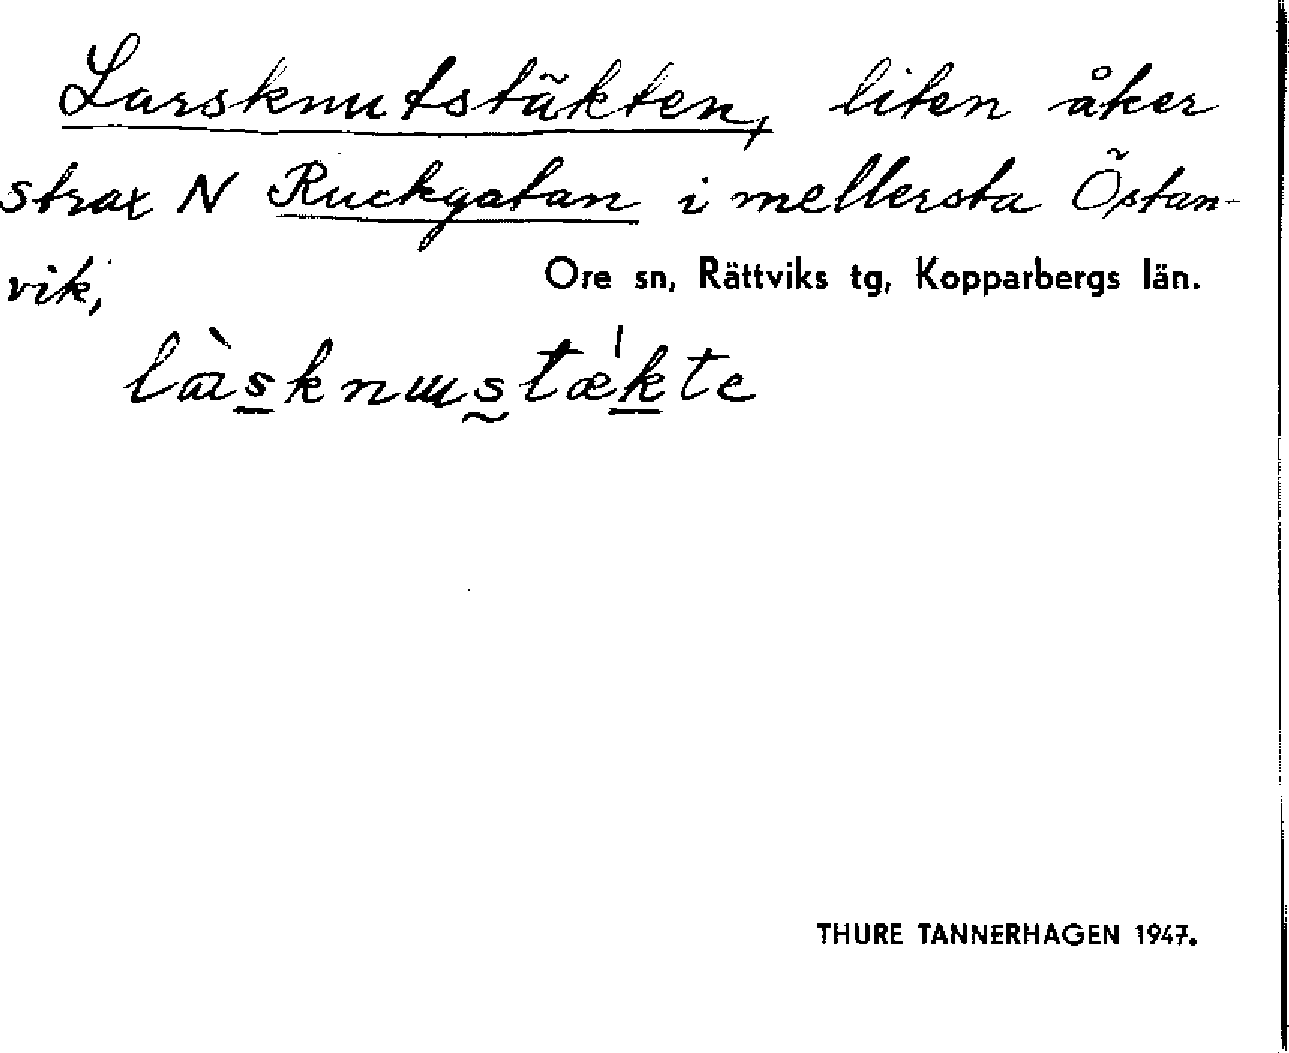 Larsknutstäkten, liten åker
strax N Ruckgatan i mellersta Östan-
vik,
Ore sn, Rättviks tg, Kopparbergs län.
THURE TANNERHAGEN 1947.